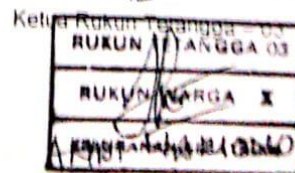 Ketua Rukun Tetangga – 03
RUKUN TETANGGA 03
RUKUN WARGA X